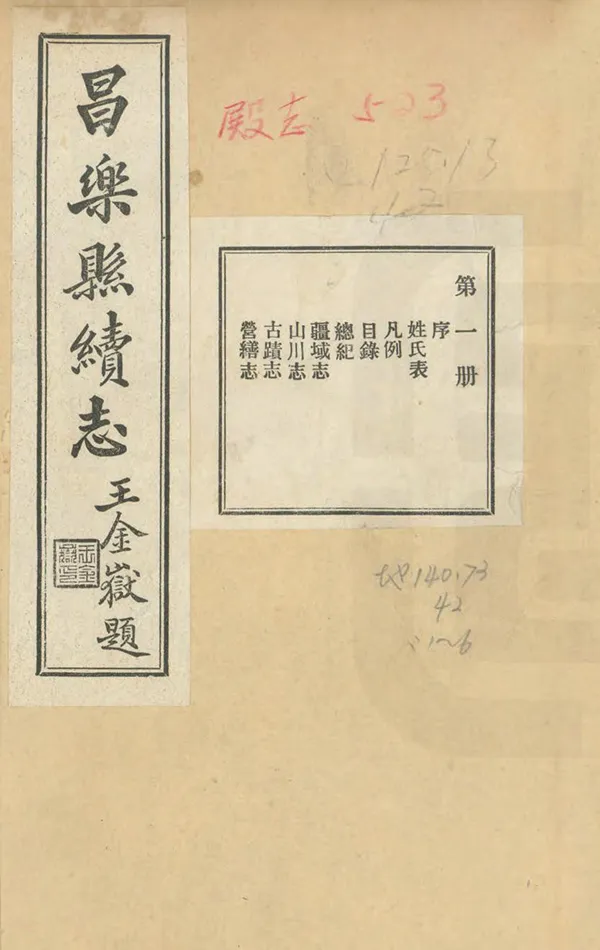 昌樂縣續志
王金嶽題
殿志 523
125.13
42
第一册
序
姓氏表
凡例
目錄
總紀
疆域志
山川志
古蹟志
營繕志
140.73
42
1~6